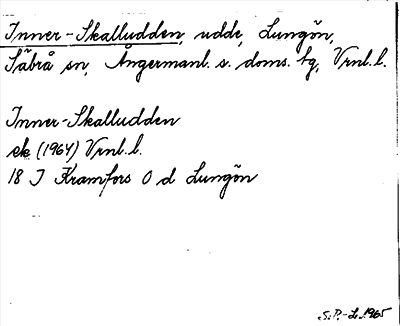 Inner-Skalludden, udde, Lungön,
Säbrå sn, Ångermanl. s. doms. tg, Vrnl. l.
Inner-Skalludden
ek (1964) Vrnl. l.
18 J Kramfors O d Lungön
S.P.-L. 1965